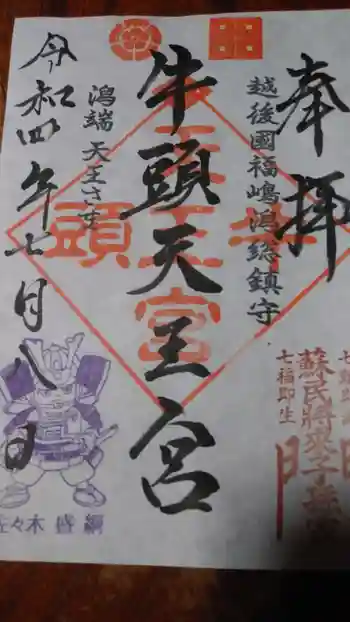 奉拝
越後國福嶋潟総鎮守
牛頭天王宮
潟端 天王さま
令和四年七月八日
蘇民将来子孫
七福即生
佐々木 盛綱